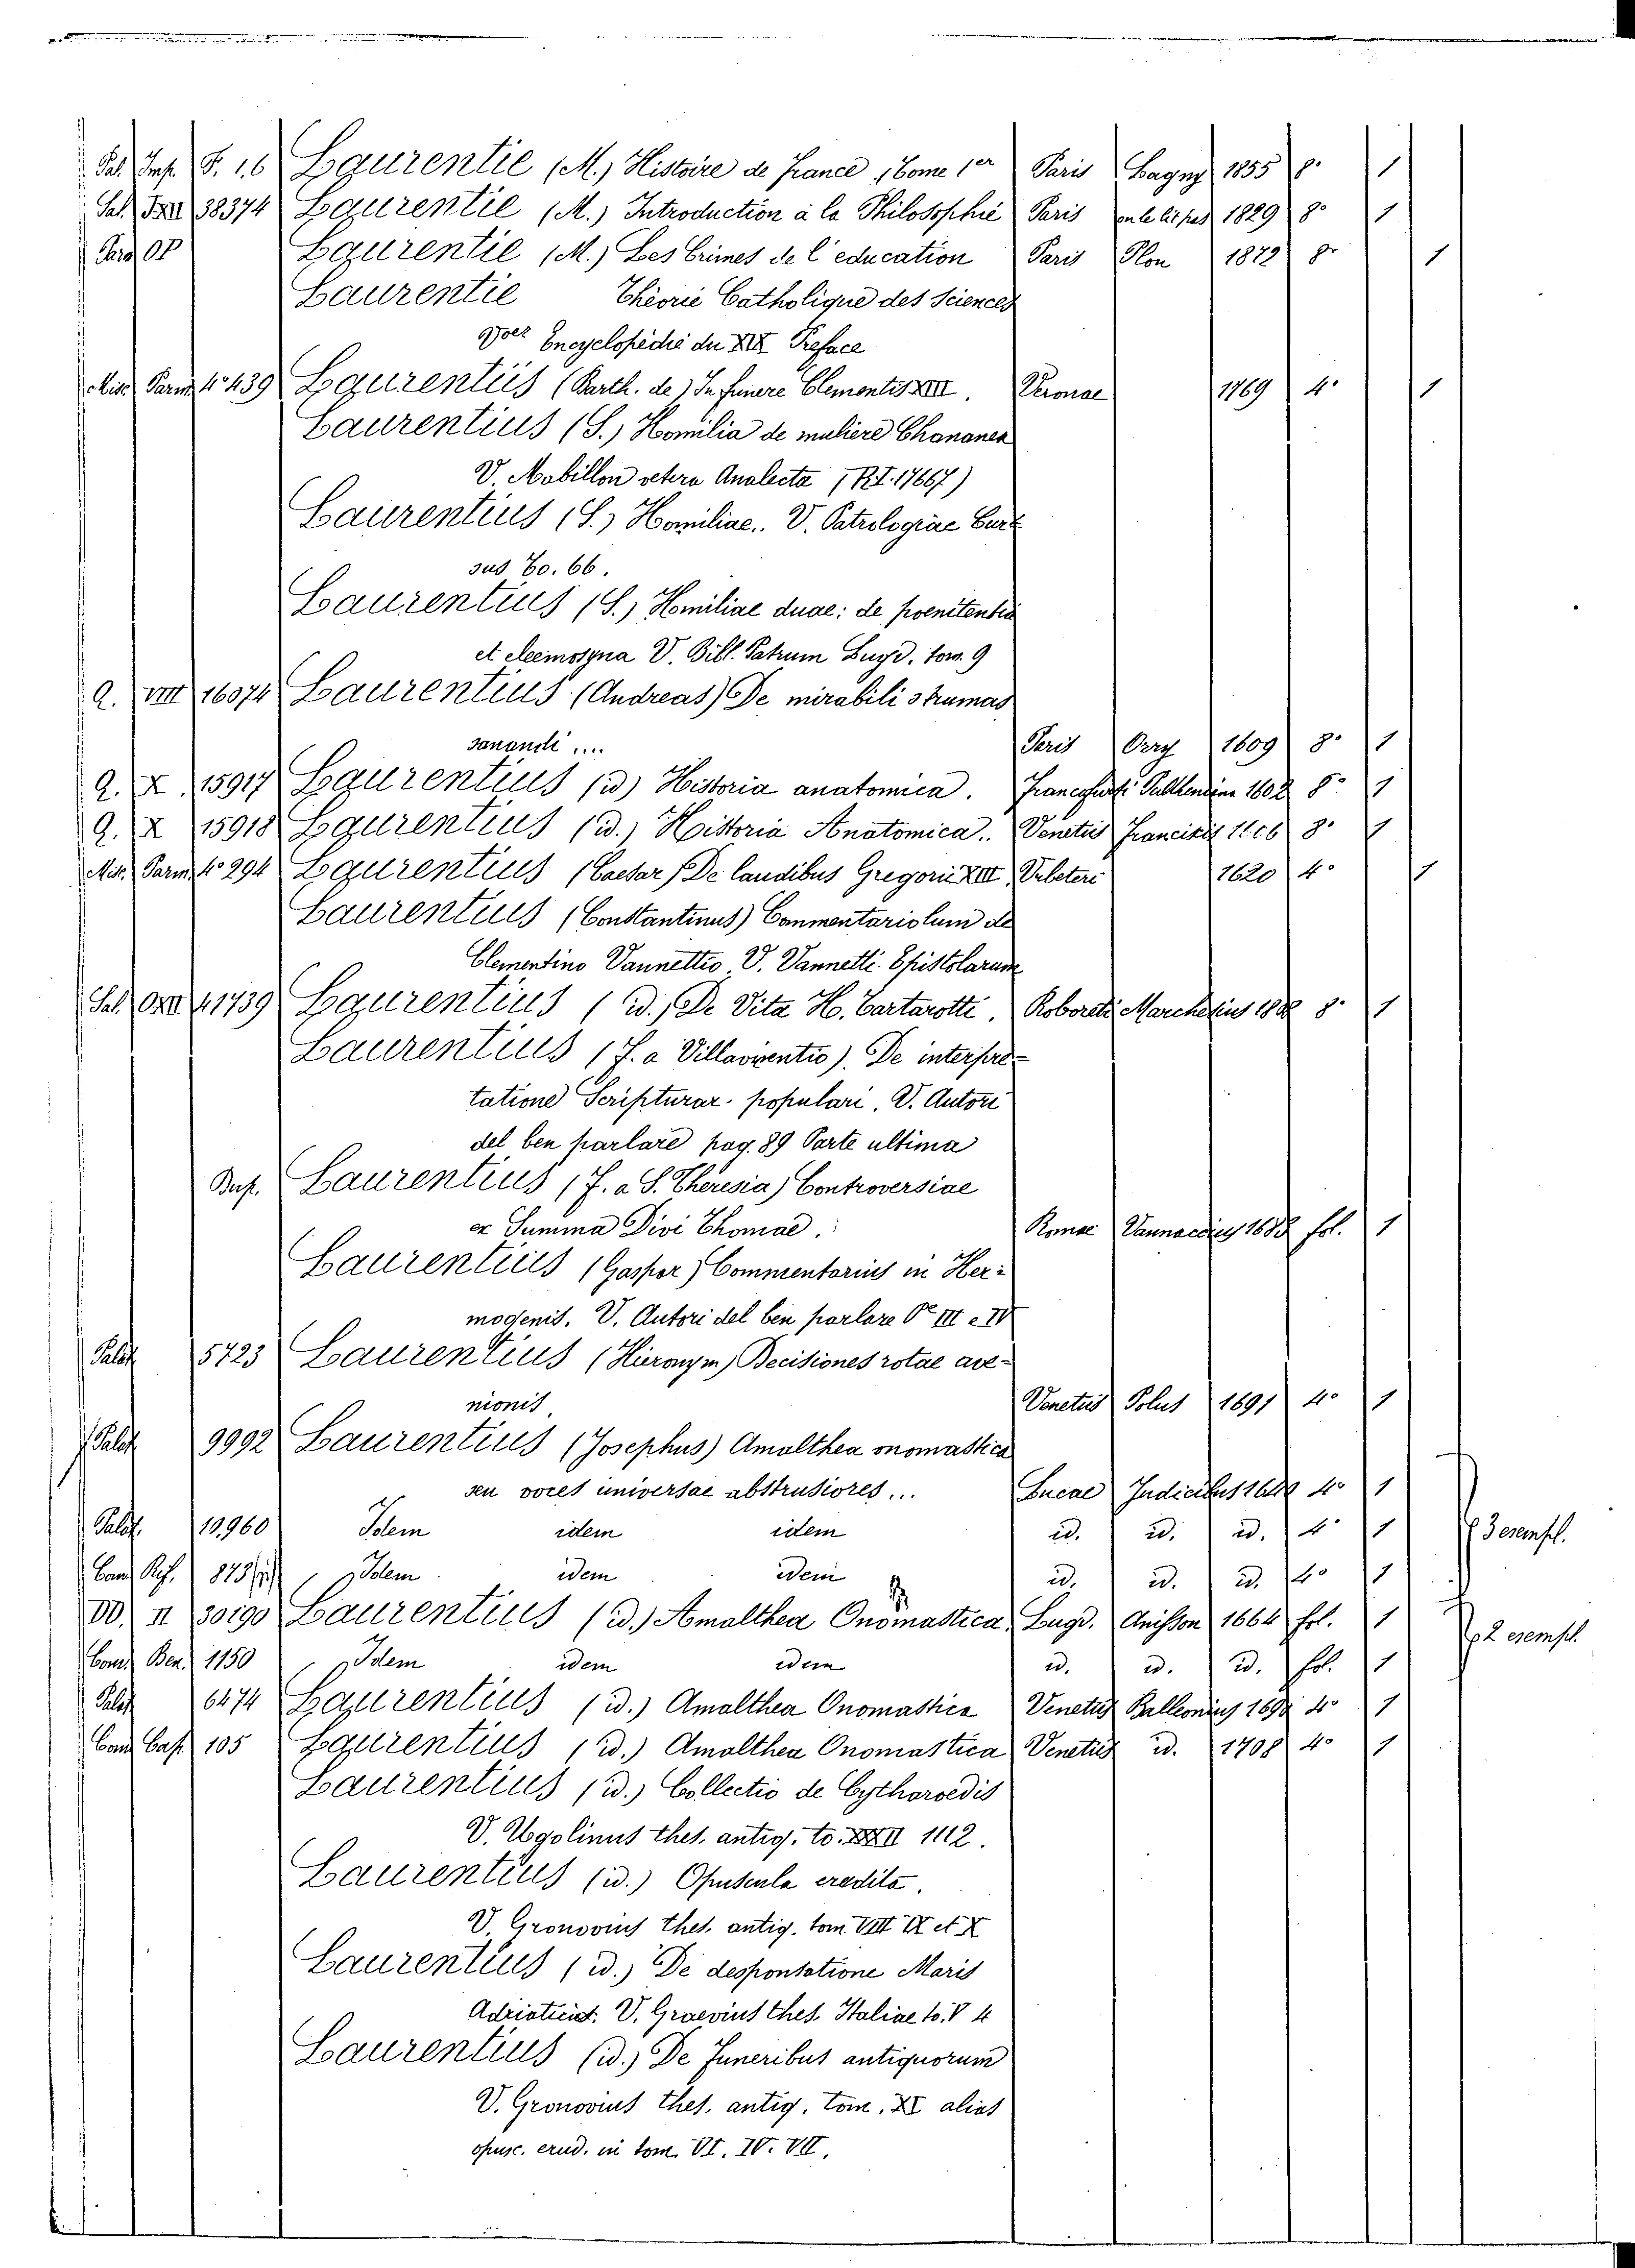 Sal. Imp. F. 16 Laurentie (M.) Histoire de France, Tome 1er Paris Lagny 1855 8° 1
Sal. 38374 Laurentie (M.) Introduction à la Philosophie Paris 1829 8° 1
Laurentie (M.) Les Crimes de l'education Paris Plon 1872 8° 1
Laurentie Théorie Catholique des Sciences
Voez Encyclopédie du XIX Preface
Misc. Parm. 4° 439 Laurentiis (Barth. de) In funere Clementis XIII. Veronae 1769 4° 1
Laurentius (S.) Homilia de muliere Chananea
V. Mabillon vetera Analecta (R.I. 17667)
Laurentius (S.) Homiliae.. V. Patrologiae Cur=
sus To. 66.
Laurentius (S.) Homiliae duae: de poenitentia
et eleemosyna V. Bibl. Patrum Lugd. tom. 9
Q. VIII 16074 Laurentius (Andreas) De mirabili strumas
sanandi .... Paris Orry 1609 8° 1
Q. X. 15917 Laurentius (id) Historia anatomica. Francofurti Palthenium 1602 8° 1
Q. X 15918 Laurentius (id.) Historia Anatomica.. Venetiis Franciscis 1606 8° 1
Misc. Parm. 4° 294 Laurentius (Caesar) De laudibus Gregorii XIII Urbeteri 1620 4° 1
Laurentius (Constantinus) Commentariolum de
Clementino Vannettio. V. Vannetti Epistolarum
Sal. 41739 Laurentius (id.) De Vita H. Tartarotti. Roboreti Marchesius 8° 1
Laurentius (F. a Villavicentio). De interpre=
tatione Scripturar. populari. V. Autori
del ben parlare pag. 89 Parte ultima
Laurentius (F. a S. Theresia) Controversiae
ex Summa Divi Thomae. Romae Vannaccius fol. 1
Laurentius (Gaspar) Commentarius in Her=
mogenis. V. Autori del ben parlare Pe III e IV
Palat. 5723 Laurentius (Hieronym) Decisiones rotae ave=
nionis Venetiis Polus 1691 4° 1
Palat. 9992 Laurentius (Josephus) Amalthea onomastica
seu voces universae abstrusiores... Lucae Indicibus 4° 1
Palat. 10,960 Idem idem idem id. id. id. 4° 1 3 esempl.
Cam. Ref. 873 Idem idem idem id. id. id. 4° 1
DD. II 30190 Laurentius (id.) Amalthea Onomastica Lugd. Anisson 1664 fol. 1 2 esempl.
Cam. Ben. 1150 Idem idem idem id. id. id. fol. 1
Palat. 6474 Laurentius (id.) Amalthea Onomastica Venetiis Balleonius 4° 1
Cam. Cap. 105 Laurentius (id.) Amalthea Onomastica Venetiis id. 1708 4° 1
Laurentius (id.) Collectio de Cytharoedis
V. Ugolinus thes. antiq. to. XXXII 1112.
Laurentius (id.) Opuscula eredita.
V. Gronovius thes. antiq. tom. VIII IX et X
Laurentius (id.) De desponsatione Maris
Adriatici. V. Graevius thes. Italiae to. V 4
Laurentius (id.) De Funeribus antiquorum
V. Gronovius thes. antiq. tom. XI alias
opusc. erud. in tom. VI. IV. VII.